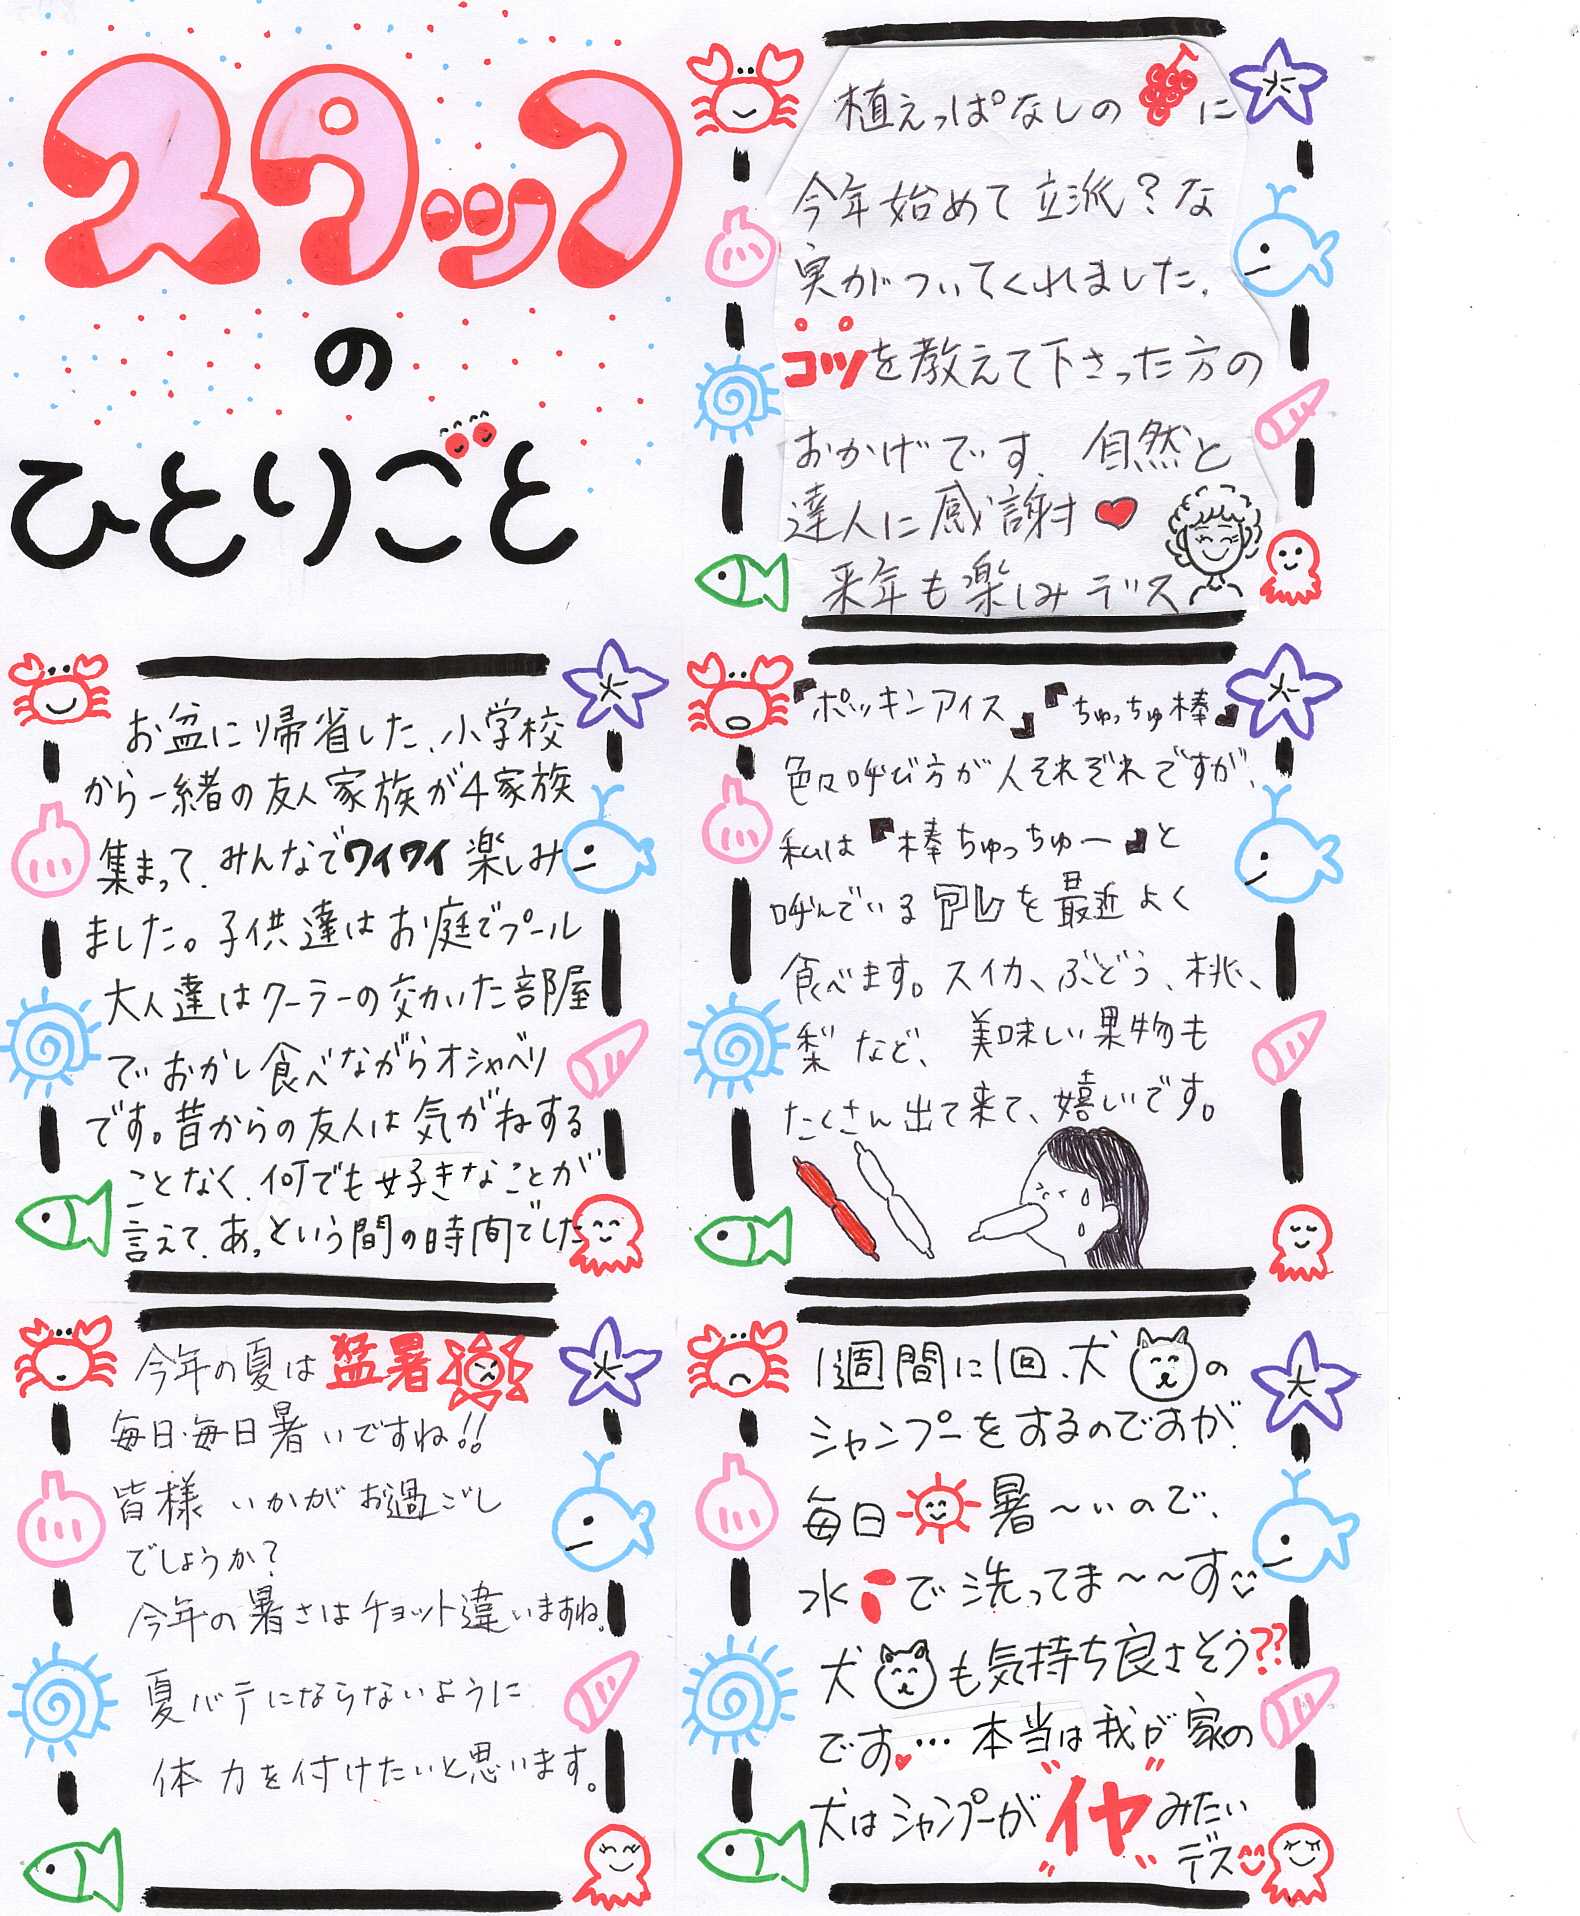 スタッフ
の
ひとりごと
植えっぱなしの に
今年始めて立派?な
実がついてくれました.
コツを教えて下さった方の
おかげです. 自然と
達人に感謝
来年も楽しみデス
お盆に帰省した、小学校
から一緒の友人家族が4家族
集まって、みんなでワイワイ楽しみ
ました。子供達はお庭でプール
大人達はクーラーの効いた部屋
でおかし食べながらオシャベリ
です。昔からの友人は気がねする
ことなく、何でも好きなことが
言えて、あっという間の時間でした
『ポッキンアイス』『ちゅっちゅ棒』
色々呼び方が人それぞれですが、
私は『棒ちゅっちゅー』と
呼んでいるアレを最近よく
食べます。スイカ、ぶどう、桃、
梨など、美味しい果物も
たくさん出て来て、嬉しいです。
今年の夏は猛暑
毎日・毎日暑いですね!!
皆様 いかがお過ごし
でしょうか?
今年の暑さはチョット違いますね。
夏バテにならないように
体力を付けたいと思います。
1週間に1回、犬 の
シャンプーをするのですが、
毎日 暑〜いので、
水 で洗ってま〜〜す
犬 も気持ち良さそう??
です…本当は我が家の
犬はシャンプーが"イヤ"みたい
デス